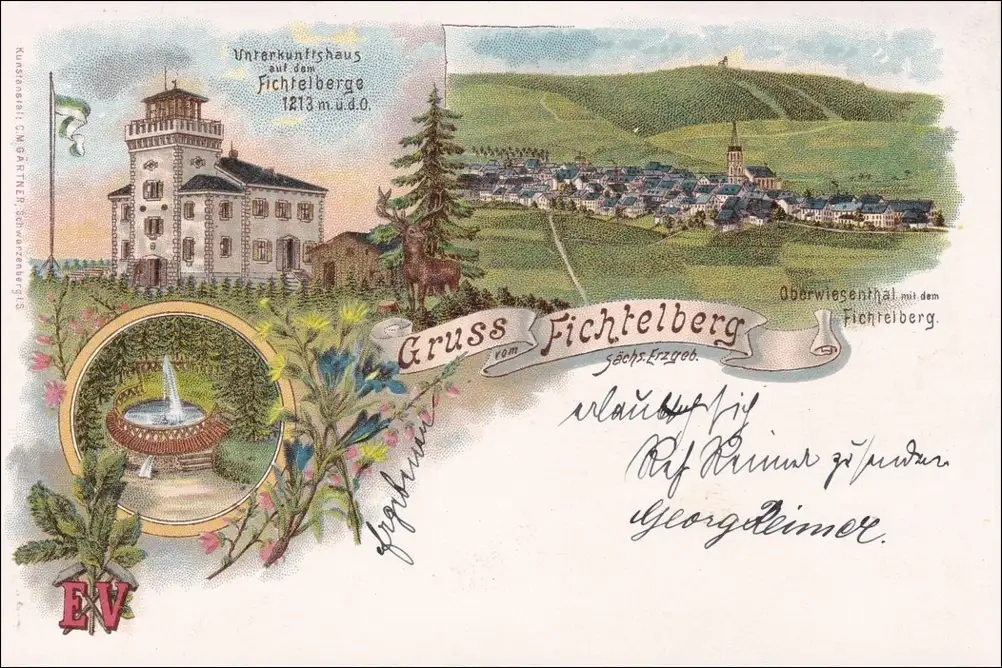 Unterkunftshaus
auf dem
Fichtelberge
1213 m ü. d. O.
Kunstanstalt C. M. GÄRTNER, Schwarzenberg i. S.
Oberwiesenthal mit dem
Fichtelberg.
Gruss vom Fichtelberg
Sächs. Erzgeb.
erlaubt sich
Reimer zu senden
Georg Reimer.
EV